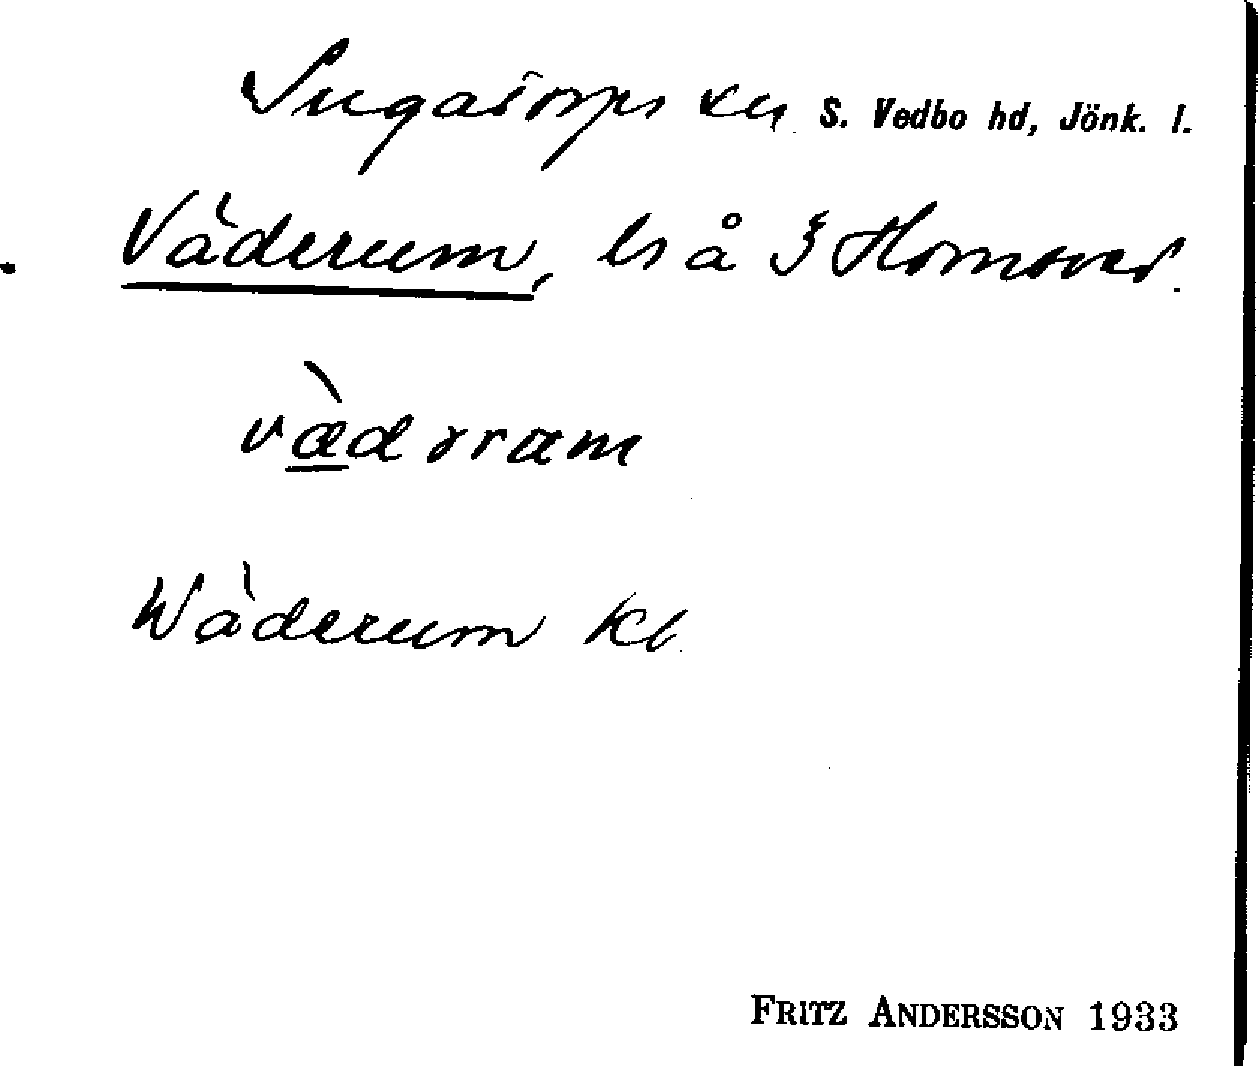 Ingatorps sn S. Vedbo hd, Jönk. l.
Väderum, ls å
vædəram
Wäderum Kb.
FRITZ ANDERSSON 1933